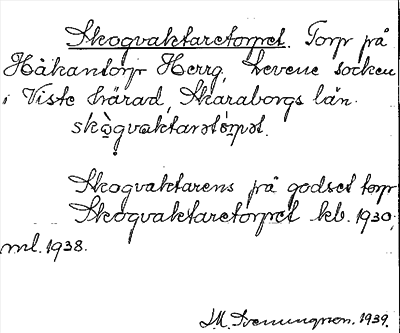 Skogvaktaretorpet. Torp på
Håkantorp Herrg, Levene socken
i Viste härad, Skaraborgs län.
skògvaktarətór̥pət.
Skogvaktarens på godset torp
Skogvaktaretorpet kb. 1930,
ml. 1938.
1939.